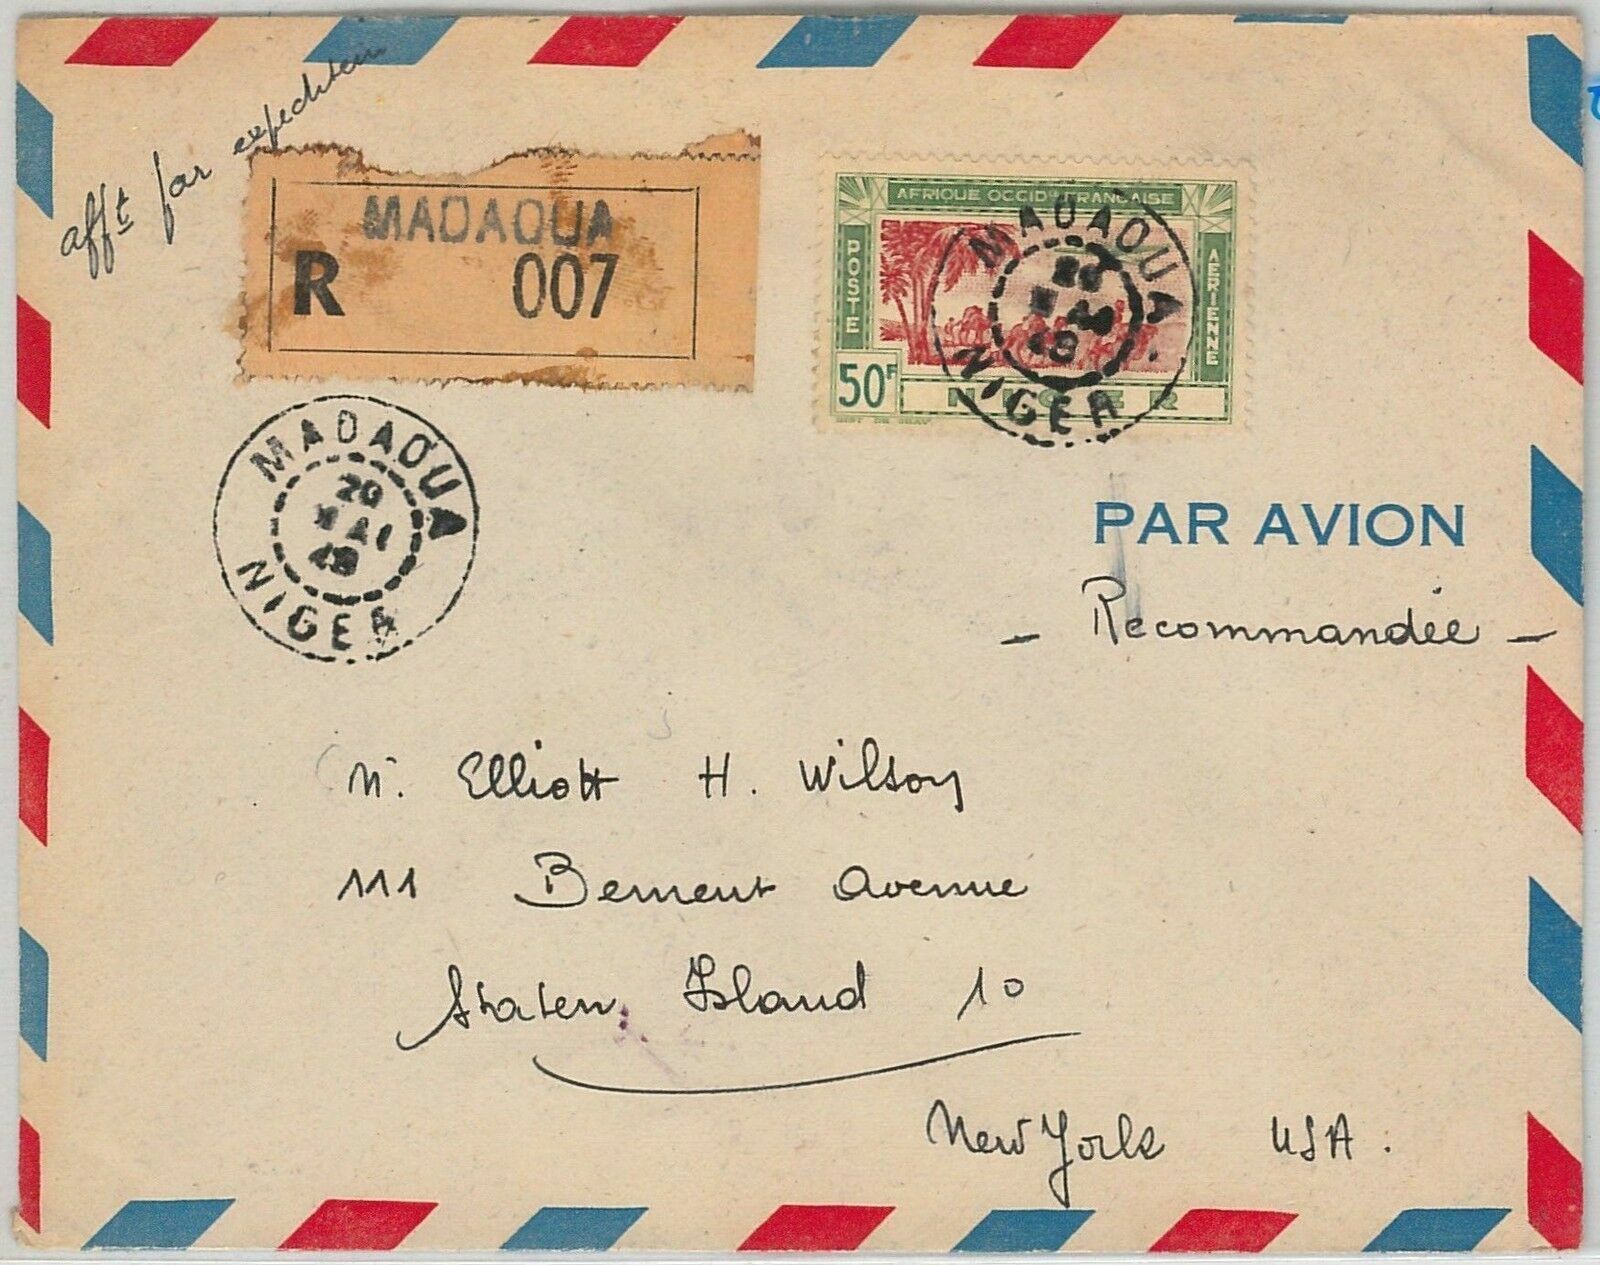 afft par expediteur
MADAOUA
R 007
AFRIQUE OCCIDLE FRANCAISE
POSTE
AERIENNE
50F
NIGER
MADAOUA
NIGER
MADAOUA
20
MAI
48
NIGER
PAR AVION
- Recommandée -
Mr. Elliott H. Wilson
111 Bement Avenue
Staten Island 10
New York USA.